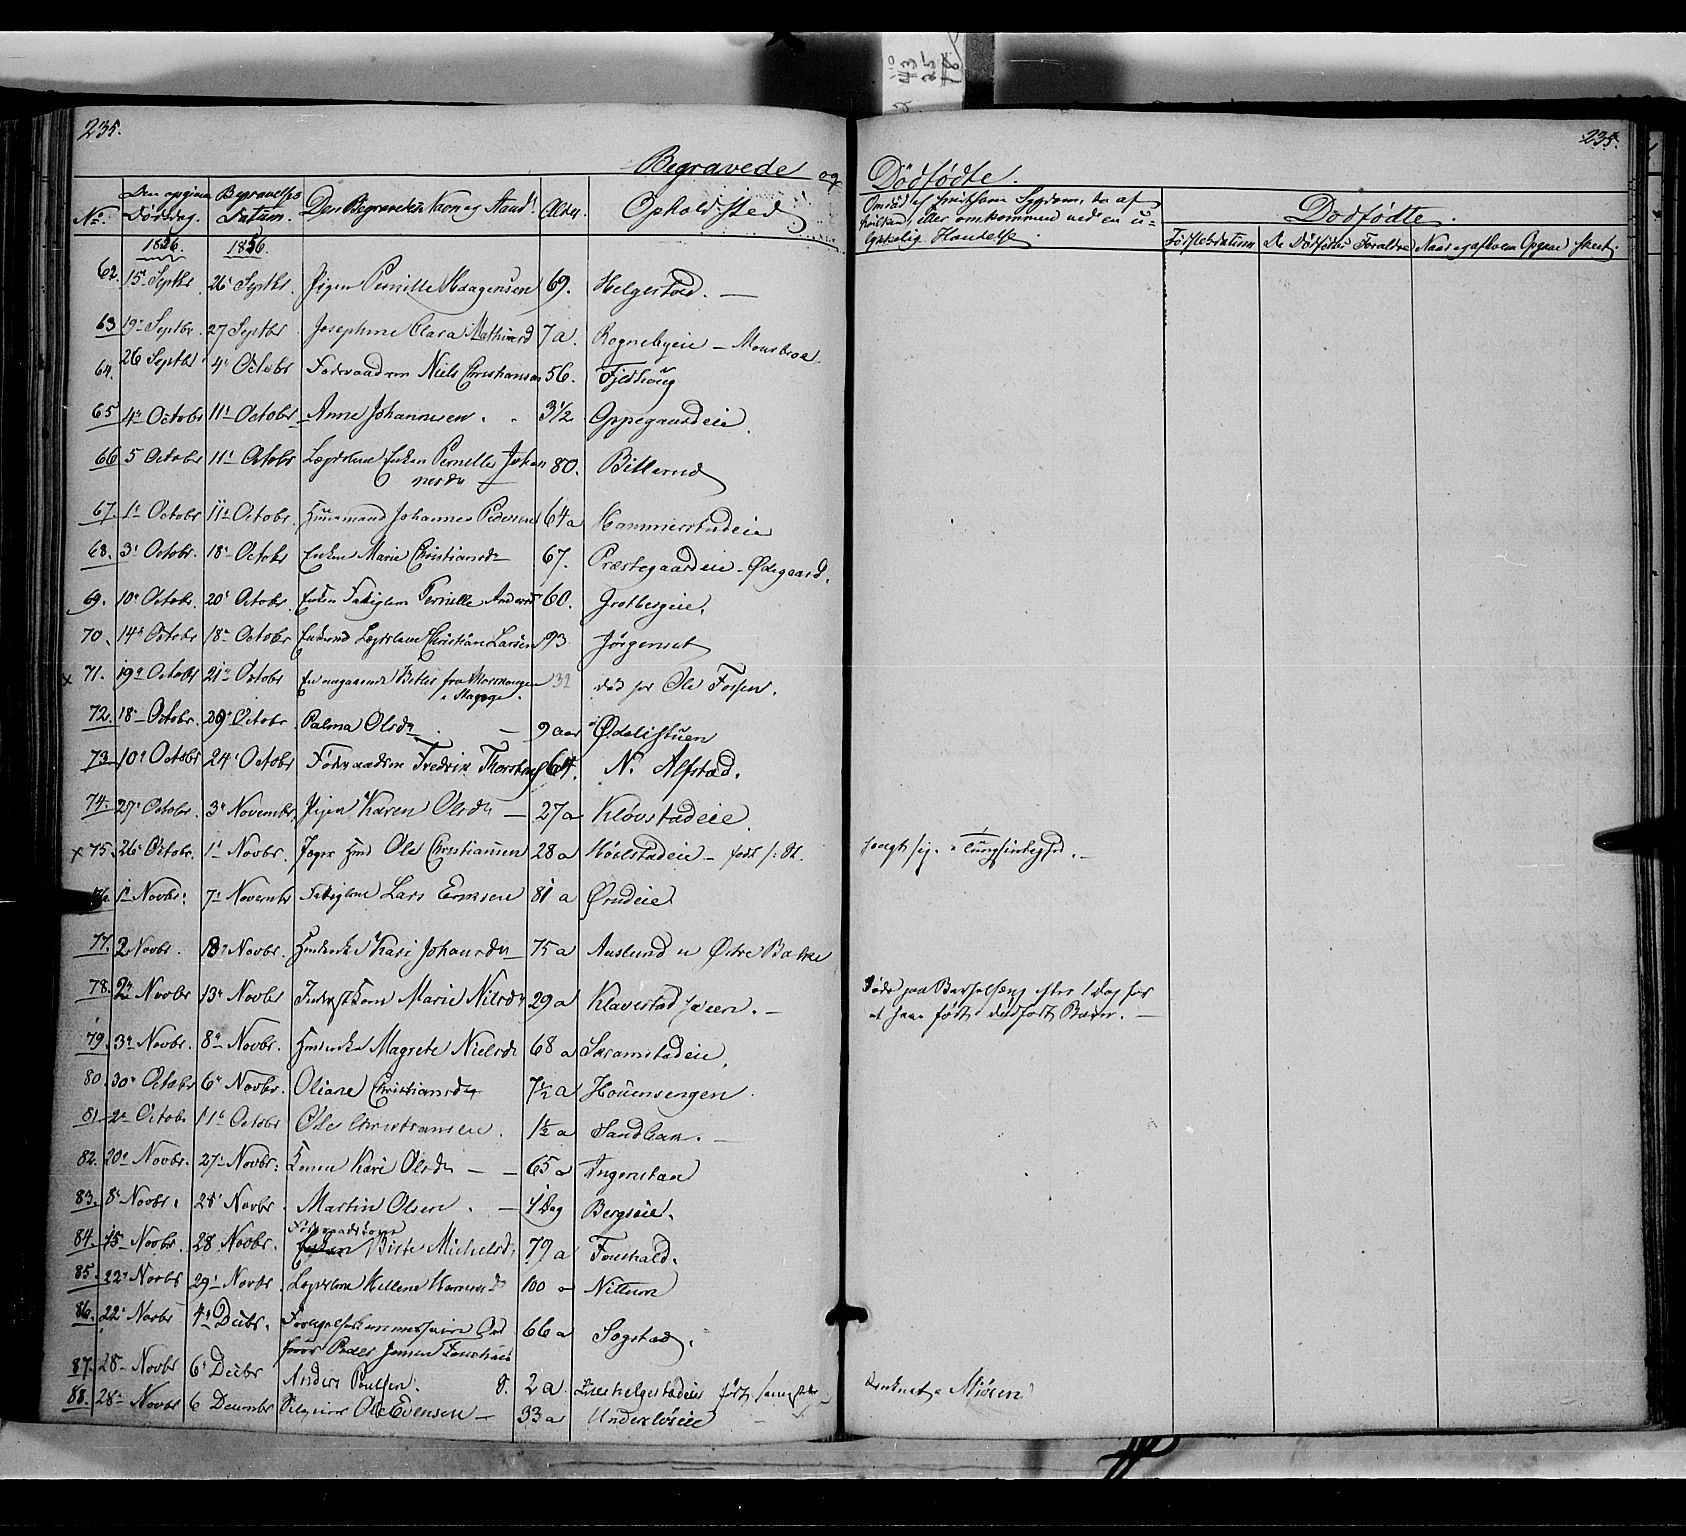 235.
235.
Begravede og Dödfödte.
No. Den opgivne Dödsdag. Begravelses Datum. Den Begravedes Navn og Stand. Alder. Opholdssted
Dödfödte.
Födselsdatum De Dödfödtes Forældre Naar og af hvem Opgave skeet.
1856. 1856.
62. 15 Septbr 26 Septbr. Pigen Pernille Haagensen 69. Helgestad.
63 19 Septbr. 27 Septbr Josephine Clara Mathisd 7 a. Rognebyeie - Mousbroe
64. 26 Septbr 4 Octobr Föderaadsm Niels Christiansen 56. Fjeldhoug
65 4 Octobr 11 Octobr Anne Johannesen. 3 1/2 Oppegaardeie
66 5 Octobr 11 Octobr Lægdslem Enken Pernille Johan
nesdr 80. Billerud
67. 1 Octobr 11 Octobr. Huusmand Johannes Pedersen 64 a Hammerstadeie
68. 3 Octobr. 18 Octobr Enken Marie Christiansdr 67. Præstegaardeie - Ødegaard.
69. 10 Octobr. 20 Octobr. Enken Fattiglem Pernille Andersd 60. Grotbergeie.
70. 14 Octobr 18 Octobr Enkemd Lægdslem Christian Larsen 93 Jörgenset
x 71. 19 Octobr 21 Octobr En omgaaende Betler fra 32 död hos Ole Fossen.
72. 18 Octobr. 29 Octobr Palma Olsdr 9 aar Ødelistuen
73. 10 Octobr 24 Octobr Föderaadsm Fredrik 64. N. Alfstad.
74. 27 Octobr. 3 Novembr. Pigen Karen Olsdr 27 a Klövstadeie
x 75. 26 Octobr. 1 Novbr. Ole Christiansen 28 a - födt hængt sig i Tungsindighed.
76. 1 Novbr. 7 Novembr Fattiglem Lars Eriksen 81 a Ørudeie
77. 2 Novbr. 8 Novbr. Kari Johansdr 75 a Aaslund u Østre Balke
78. 2 Novbr 13 Novbr Inderstkone Marie Nilsdr 29 a Klavestad Döde paa Barselseng efter 1 Dag for
at have födt dödfödt Barn.
79. 3 Novbr. 8 Novbr. Magrete Nielsdr 68 a Saramstadeie
80. 30 Octobr 6 Novbr. Oliane Christiansdr 7 1/2 a Houensengen
81. 2 Octobr 11 Octobr Ole Christiansen. 1 1/2 a Sandbak.
82. 20 Novbr. 27 Novbr. Konen Kari Olsdr 65 a Ingerstan
83. 8 Novbr. 28 Novbr. Martin Olsen. 1 Dag Bergseie.
84. 15 Novbr. 28 Novbr. Föderaadskonen
Birte Michelsd 79 a Fouskald.
85. 22 Novbr 29 Novbr. Lægdslem Hellene 100 a Nittum
86. 22 Novbr 4 Decbr. Forligelseskommissair Ord
förer Peder Jensen 66 a Sogstad.
87. 28 Novbr 6 Decbr Anders Poulsen. 2 a. Lillehelgestadeie
88. 28 Novbr 6 Decembr Ole Evensen 33 a Underlöseie Druknet i Mjösen